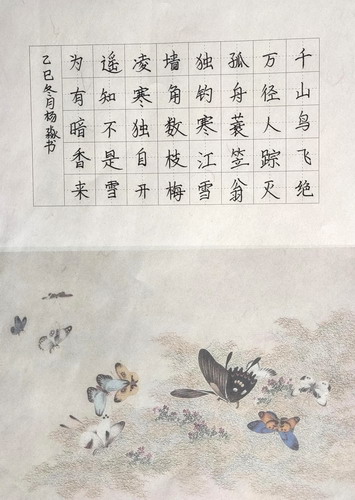 千山鸟飞绝
万径人踪灭
孤舟蓑笠翁
独钓寒江雪
墙角数枝梅
凌寒独自开
遥知不是雪
为有暗香来
乙巳冬月杨书